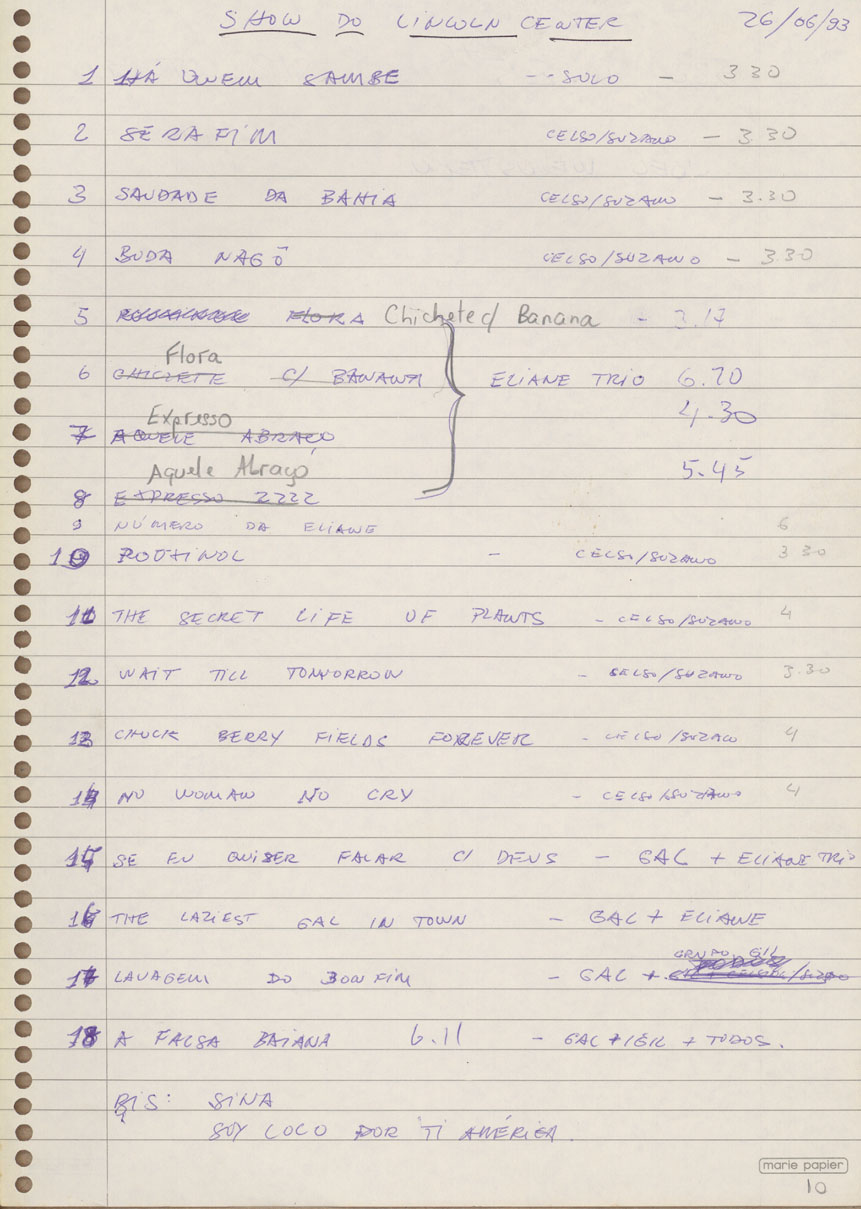 SHOW DO LINCOLN CENTER 26/06/93
1 HÁ QUEM SAMBE -- SOLO - 3 30
2 SERAFIM CELSO/SUZANO - 3.30
3 SAUDADE DA BAHIA CELSO/SUZANO - 3.30
4 BUDA NAGÔ CELSO/SUZANO - 3.30
5 FLORA Chiclete c/ Banana - 3.17
Flora
6 CHICLETE C/ BANANA ELIANE TRIO 6.20
Expresso 4.30
7 AQUELE ABRAÇO
Aquele Abraço 5.45
8 EXPRESSO 2222
9 NÚMERO DA ELIANE 6
10 ROUXINOL - CELSO/SUZANO 3 30
11 THE SECRET LIFE OF PLANTS - CELSO/SUZANO 4
12 WAIT TILL TOMORROW - CELSO/SUZANO 3.30
13 CHUCK BERRY FIELDS FOREVER - CELSO/SUZANO 4
14 NO WOMAN NO CRY - CELSO/SUZANO 4
15 SE EU QUISER FALAR C/ DEUS - GAL + ELIANE TRIO
16 THE LAZIEST GAL IN TOWN - GAL + ELIANE
GRUPO GIL
17 LAVAGEM DO BONFIM - GAL +
18 A FALSA BAIANA 6.11 - GAL + GIL + TODOS.
BIS: SINA
SOY LOCO POR TI AMÉRICA.
marie papier
10